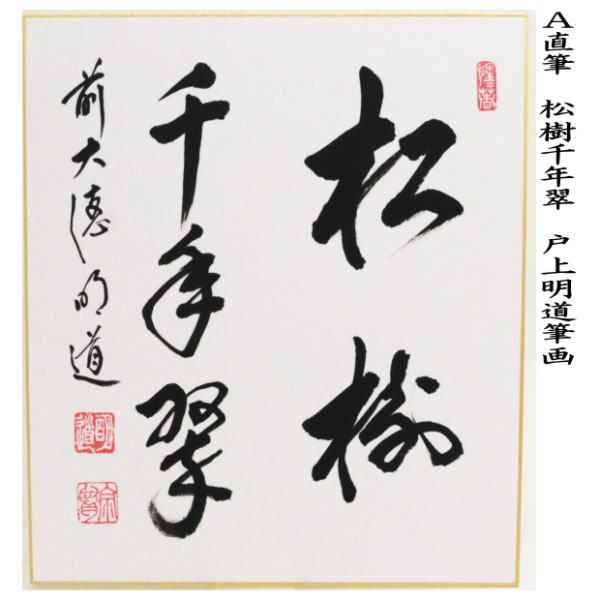 A直筆　松樹千年翠　戸上明道筆画
松樹
千年翠
前大徳明道